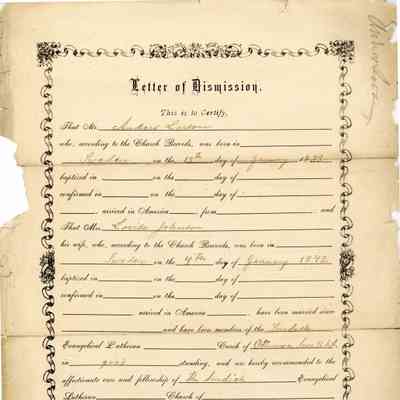 Letter of Dismission.
This is to Certify,
That Mr. Anders Larson
who, according to the Church Records, was born in
Sweden on the 13th day of January 18
baptized in on the day of
confirmed in on the day of
arrived in America from and
That Mrs. Lovisa Johnson
his wife, who, according to the Church Records, was born in
Sweden on the 9th day of January 1842
baptized in on the day of
confirmed in on the day of
arrived in America, have been married since
and have been members of the Swedish
Evangelical Lutheran Church of Ottumwa
in good standing, and are hereby recommended to the
affectionate care and fellowship of the Swedish Evangelical
Lutheran Church of